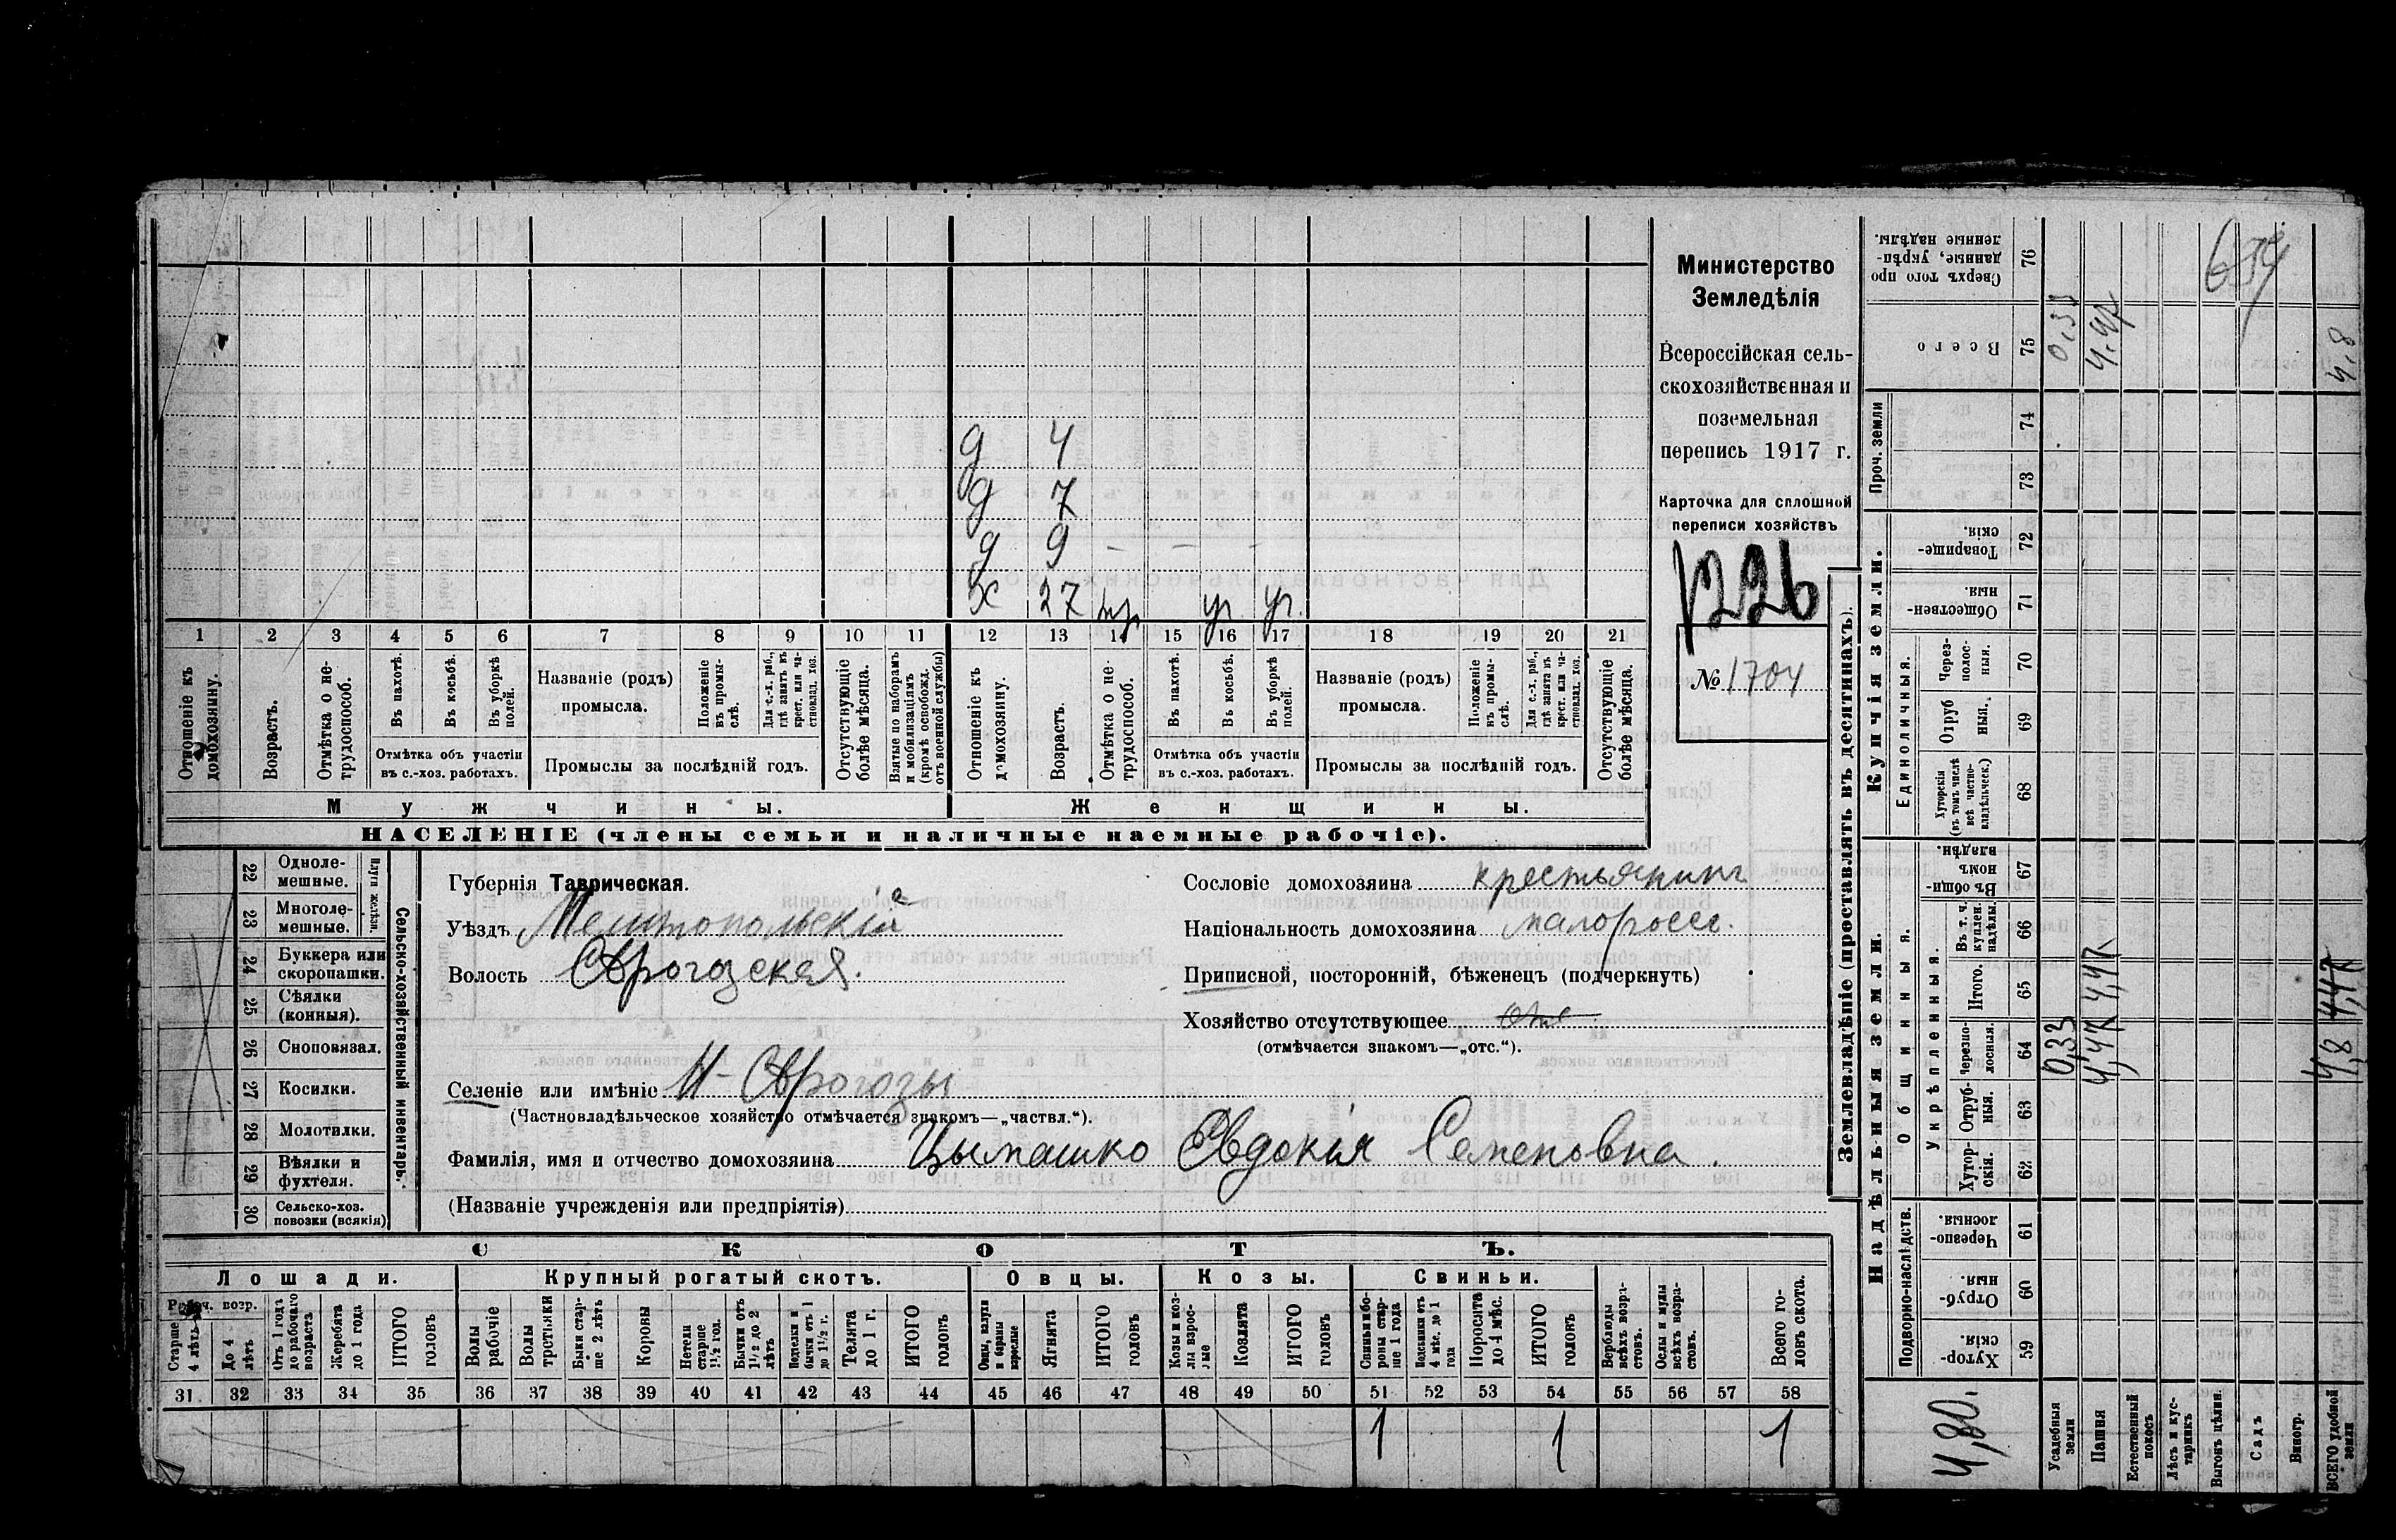 Министерство
Земледѣлія
Всероссійская сель-
скохозяйственная и
поземельная
перепись 1917 г.
Карточка для сплошной
переписи хозяйствъ
1226
№ 1704
д 4
д 7
д 9 - - -
х 27 ур. ур.
1 2 3 4 5 6 7 8 9 10 11 12 13 14 15 16 17 18 19 20 21
Отношеніе къ домохозяину.
Возрастъ.
Отмѣтка о не-трудоспособ.
Въ пахотѣ.
Въ косьбѣ.
Въ уборкѣ полей.
Отмѣтка объ участіи
въ с.-хоз. работахъ.
Названіе (родъ)
промысла.
Положеніе въ промы-слѣ.
Для с.-х. раб., гдѣ занятъ въ крест. или ча-стновлад. хоз.
Промыслы за послѣдній годъ.
Отсутствующіе болѣе мѣсяца.
Взятые по наборамъ и мобилизаціямъ (кромѣ освобожд. отъ военной службы)
Отношеніе къ домохозяину.
Возрастъ.
Отмѣтка о не-трудоспособ.
Въ пахотѣ.
Въ косьбѣ.
Въ уборкѣ полей.
Отмѣтка объ участіи
въ с.-хоз. работахъ.
Названіе (родъ)
промысла.
Положеніе въ промы-слѣ.
Для с.-х. раб., гдѣ занята въ крест. или ча-стновлад. хоз.
Промыслы за послѣдній годъ.
Отсутствующіе болѣе мѣсяца.
Мужчины.
Женщины.
НАСЕЛЕНІЕ (члены семьи и наличные наемные рабочіе).
22 Одноле-мешные.
23 Многоле-мешные.
Плуги желѣзн.
24 Буккера или скоропашки.
25 Сѣялки (конныя).
26 Сноповязал.
27 Косилки.
28 Молотилки.
29 Вѣялки и фухтеля.
30 Сельско-хоз. повозки (всякія)
Сельско-хозяйственный инвентарь.
Губернія Таврическая.
Уѣздъ Мелитопольскій
Волость
Селеніе или имѣніе
(Частновладѣльческое хозяйство отмѣчается знакомъ—„частвл.“).
Фамилія, имя и отчество домохозяина Цымашко Евдокія Семеновна.
(Названіе учрежденія или предпріятія)
Сословіе домохозяина крестьянинъ
Національность домохозяина малоросс.
Приписной, посторонній, бѣженецъ (подчеркнуть)
Хозяйство отсутствующее
(отмѣчается знакомъ—„отс.“).
СКОТЪ.
Лошади.
Крупный рогатый скотъ.
Овцы.
Козы.
Свиньи.
Рабоч. возр.
Старше 4 лѣтъ
До 4 лѣтъ
Отъ 1 года до рабочаго возраста
Жеребята до 1 года
ИТОГО головъ
Волы рабочіе
Волы третьяки
Быки стар-ше 2 лѣтъ
Коровы
Нетели старше 1½ год.
Бычки отъ 1½ до 2 лѣтъ
бычки отъ 1 до 1½ г.
Телята до 1 г.
ИТОГО головъ
Овцы, валухи и бараны взрослые
Ягнята
ИТОГО головъ
Козы и коз-лы взрос-лые
Козлята
ИТОГО головъ
Свиньи и бо-ровы стар-ше 1 года
Подсвинки отъ 4 мѣс. до 1 года
Поросята до 4 мѣс.
ИТОГО головъ
Верблюды всѣхъ возра-стовъ.
Ослы и мулы всѣхъ возра-стовъ.
Всего го-ловъ скота.
31 32 33 34 35 36 37 38 39 40 41 42 43 44 45 46 47 48 49 50 51 52 53 54 55 56 57 58
1 1 1
Землевладѣніе (проставлять въ десятинахъ).
Надѣльныя земли.
Купчія земли.
Подворно-наслѣдств.
Общинныя.
Укрѣпленныя.
Единоличныя.
Проч. земли
Хутор-скія. 59
Отруб-ныя 60
Черезпо-лосныя. 61
Хутор-скія. 62
Отруб-ныя. 63
Черезпо-лосныя. 64
Итого. 65
Въ т. ч. куплен. надѣлы. 66
Въ общин-номъ владѣн. 67
Хуторскія (въ томъ числѣ всѣ частно-владѣльческ.) 68
Отруб ныя. 69
Через-полос-ныя. 70
Обществен-ныя. 71
Товарище-скія. 72
73
74
Всего 75
Сверхъ того про данные, укрѣп-ленные надѣлы. 76
Усадебныя земли 0,33 0,33
Пашня 4,47 4,47 4,47
Естественный покосъ
Лѣсъ и кус-тарникъ
Выгонъ цѣлин.
Садъ
Виногр.
ВСЕГО удобной земли 4,8 4,47 4,8
4,80.
654